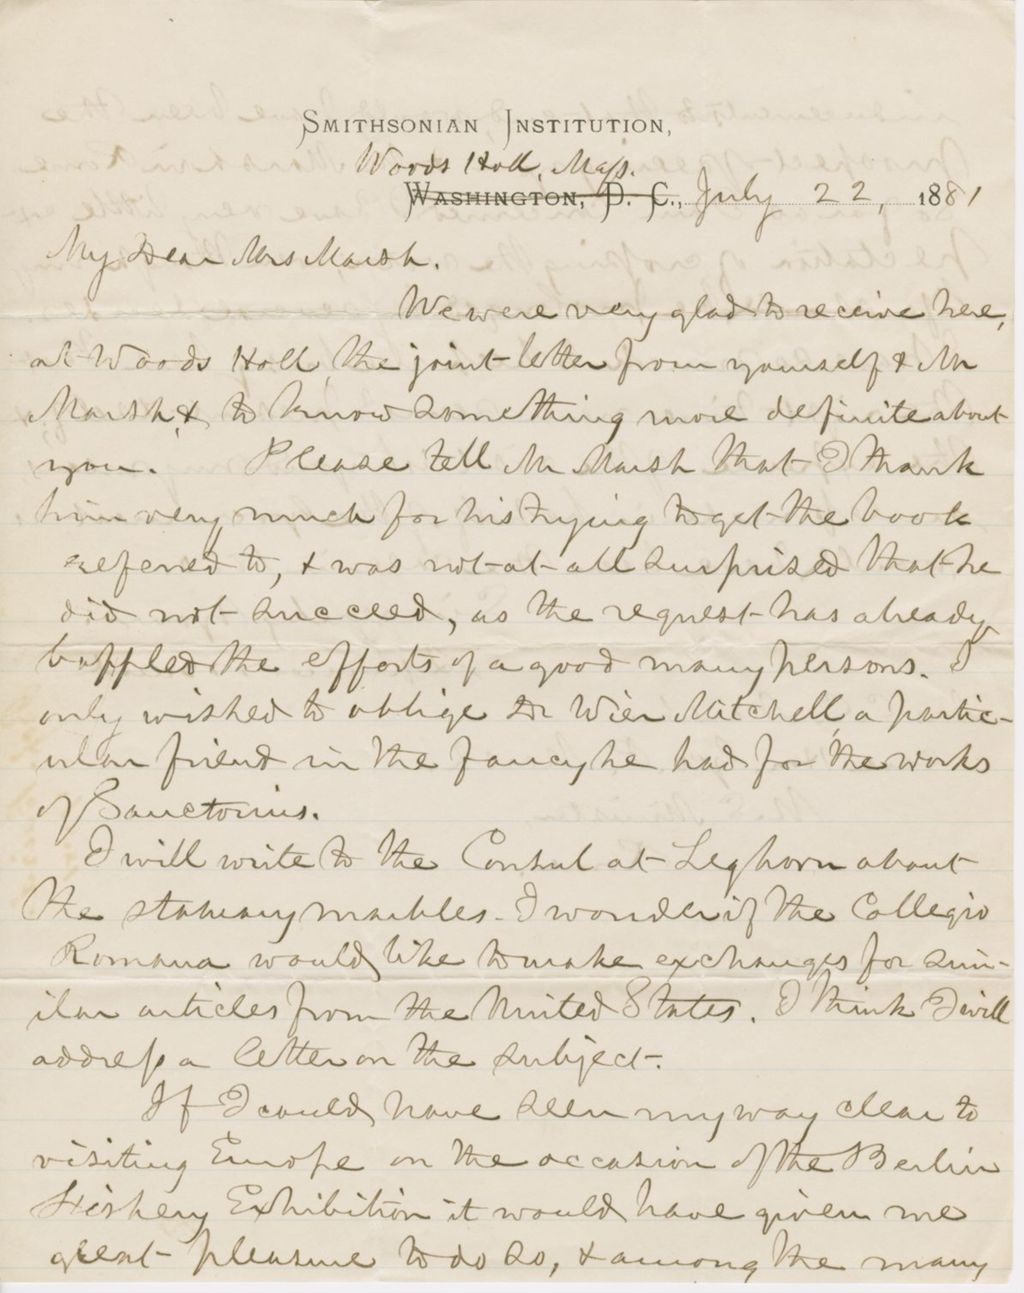 Smithsonian Institution,
Woods Holl, Mass.
Washington, D. C., July 22, 1881
My Dear Mrs Marsh.
We were very glad to receive here,
at Woods Holl, the joint letter from yourself & Mr
Marsh, & to know something more definite about
you. Please tell Mr Marsh that I thank
him very much for his trying to get the book
referred to, & was not at all surprised that he
did not succeed, as the request has already
baffled the efforts of a good many persons. I
only wished to oblige Dr Wier Mitchell, a partic-
ular friend in the fancy he had for the works
of Sanctorius.
I will write to the Consul at Leghorn about
the statuary marbles. I wonder if the Collegio
Romana would like to make exchanges for sim-
ilar articles from the United States. I think I will
address a letter on the subject.
If I could have seen my way clear to
visiting Europe on the occasion of the Berlin
Fishery Exhibition it would have given me
great pleasure to do so, & among the many